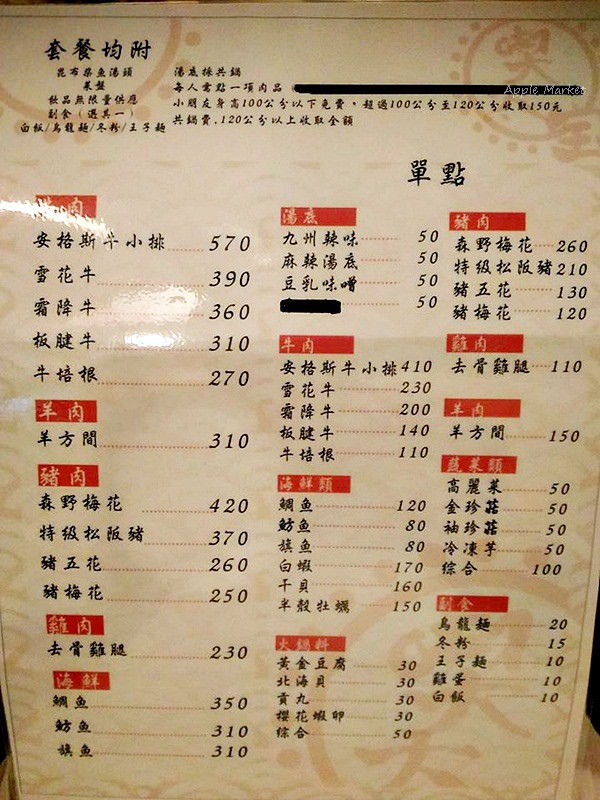 套餐均附
昆布柴魚湯頭
菜盤
飲品無限量供應
副食（選其一）
白飯/烏龍麵/冬粉/王子麵
湯底採共鍋
每人需點一項肉品
小朋友身高100公分以下免費，超過100公分至120公分收取150元
共鍋費,120公分以上收取全額
Apple Market
單點
牛肉
安格斯牛小排 570
雪花牛 390
霜降牛 360
板腱牛 310
牛培根 270
羊肉
羊方間 310
豬肉
森野梅花 420
特級松阪豬 370
豬五花 260
豬梅花 250
雞肉
去骨雞腿 230
海鮮
鯛魚 350
魴魚 310
旗魚 310
湯底
九州辣味 50
麻辣湯底 50
豆乳味噌 50
50
牛肉
安格斯牛小排 410
雪花牛 230
霜降牛 200
板腱牛 140
牛培根 110
海鮮類
鯛魚 120
魴魚 80
旗魚 80
白蝦 170
干貝 160
半殼牡蠣 150
火鍋料
黃金豆腐 30
北海貝 30
貢丸 30
櫻花蝦卵 30
綜合 50
豬肉
森野梅花 260
特級松阪豬 210
豬五花 130
豬梅花 120
雞肉
去骨雞腿 110
羊肉
羊方間 150
蔬菜類
高麗菜 50
金珍菇 50
袖珍菇 50
冷凍芋 50
綜合 100
副食
烏龍麵 20
冬粉 15
王子麵 10
雞蛋 10
白飯 10